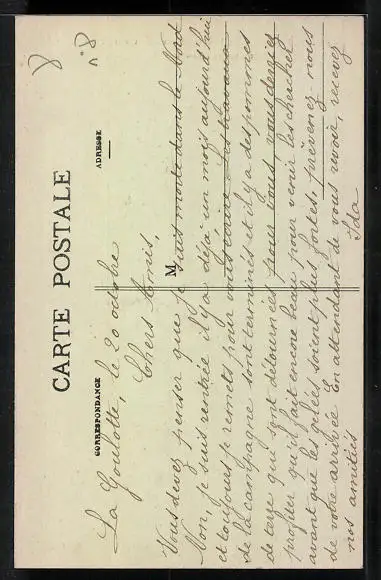 8
n° 8
CARTE POSTALE
CORRESPONDANCE
ADRESSE
M
La Goulotte, le 20 octobre
Chers Amis,
Vous devez penser que je suis morte dans le Nord
Non, je suis rentrée il y a déjà un mois aujourd'hui
et toujours je remets pour vous écrire les travaux
de la campagne sont terminés et il y a des pommes
de terre qui sont détournées pour vous, vous devriez
profiter qu'il fait encore beau pour venir les chercher
avant que les gelées soient plus fortes, prévenez nous
de votre arrivée En attendant de vous revoir, recevez
nos amitiés
Ida